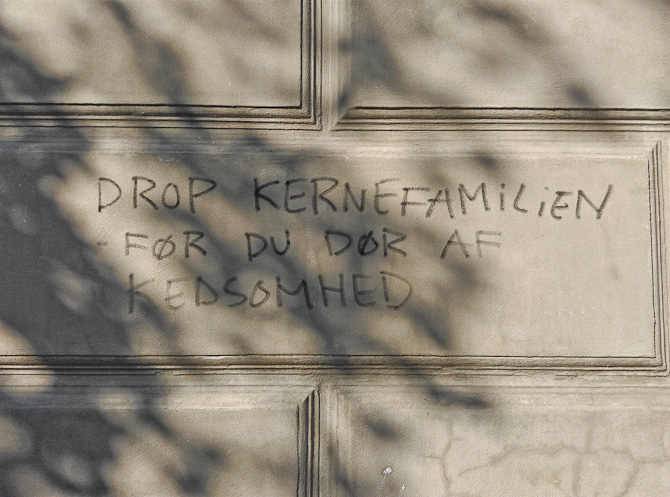 DROP KERNEFAMiLiEN
- FØR DU DØR AF
KEDSOMHED